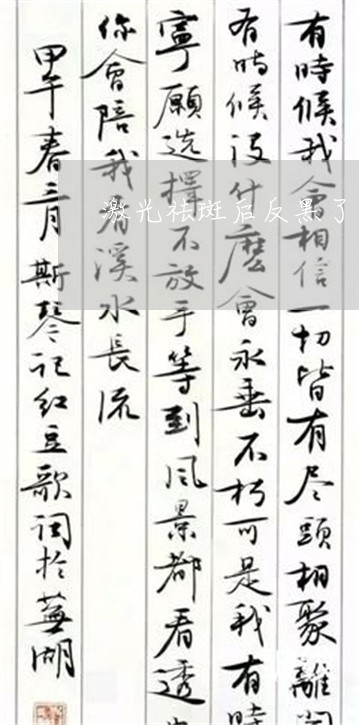 有時候我會相信一切皆有尽頭相聚離
有時候沒什麼會永垂不朽可是我有時
寧願选擇不放手等到风景都看透
你會陪我看溪水長流
甲午春三月斯琴记红豆歌词於蕪湖
激光祛斑后反黑了